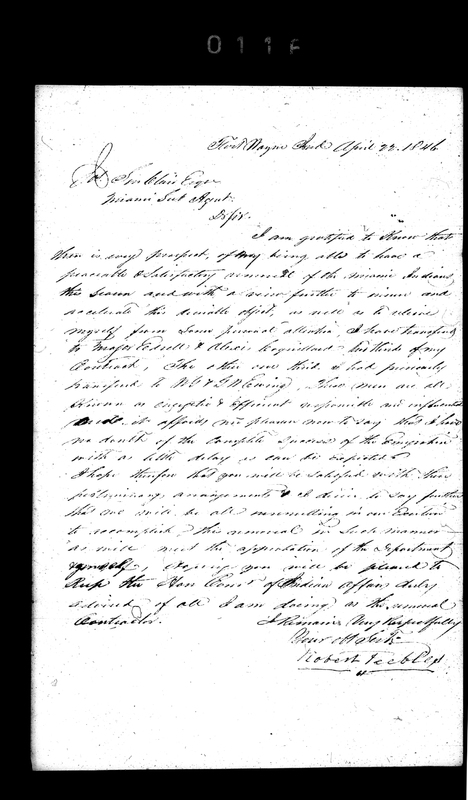 011
Fort Wayne Ind April 22. 1846
Jos Sinclair Esqr
Miami Sub Agent.
D Sir.
I am gratified to Know that
there is every prospect, of my being able to have a
peaceable & Satisfactory removal of the miami Indians
this Season and with a view further to insure and
accelerate this desirable object, as well as to relieve
myself from Some personal attention I have transfered
to Major Fedrell & Alexis Coquillard two thirds of my
Contract, The other one third I had previously
transfered to W G & G W Ewing These men are all
Known as energetic & Efficient responsible and influential
and it affords me pleasure now to say that I have
no doubt of the Complete Success of the Emigration
with as little delay as can be expected
I hope therefore that you will be Satisfied with these
preliminary arrangements & I desire to say further
that we will be all unremitting in our Exertion
to accomplish this removal in Such manner
as will meet the approbation of the Department
& yourself, hoping you will be pleased to
Keep the Hon Com of Indian Affairs duly
advised of all I am doing as the removal
Contractor.
I Remain Very Respectfully
Your Ob Servt
Robert Peebles